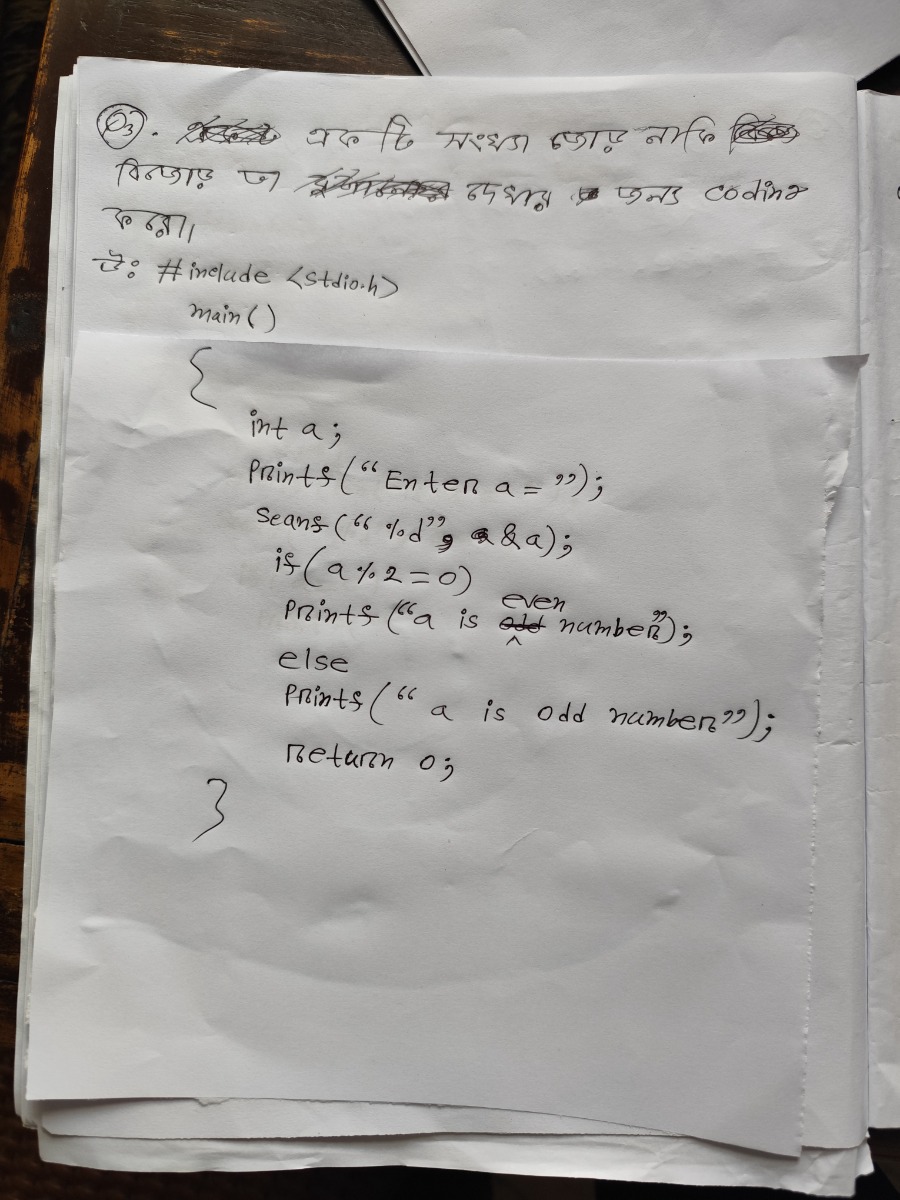 Q3. একটি সংখ্যা জোড় নাকি
বিজোড় তা দেখার জন্য coding
করো।
উঃ #include <stdio.h>
main()
{
int a;
Printf(“Enter a = ”);
Scanf(“%d”, &a);
if(a%2=0)
Printf(“a is even number”);
else
Printf(“ a is odd number”);
Return 0;
}